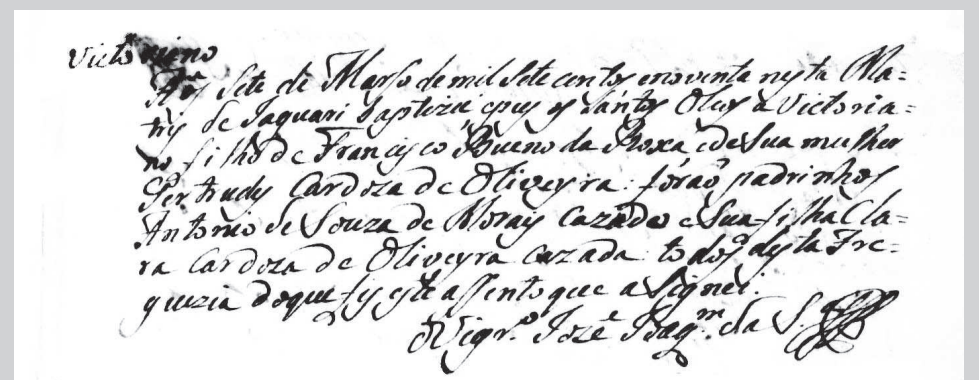 Victoriano
Aos sete de Março de mil sete centos enoventa nesta Ma=
tris de Jaguari baptizei epus os Santos Oleos a Victoria=
no filho de Francisco Bueno da Roxa edeSua mulher
Gertrudes Cardoza de Oliveyra: forão padrinhos
Antonio de Souza de Morais cazado e Sua filha Cla=
ra Cardoza de Oliveyra cazada todos desta Fre=
guezia doque fis este assento que a Signei.
O Vigr.º Jozé Joaq.m da S.ª